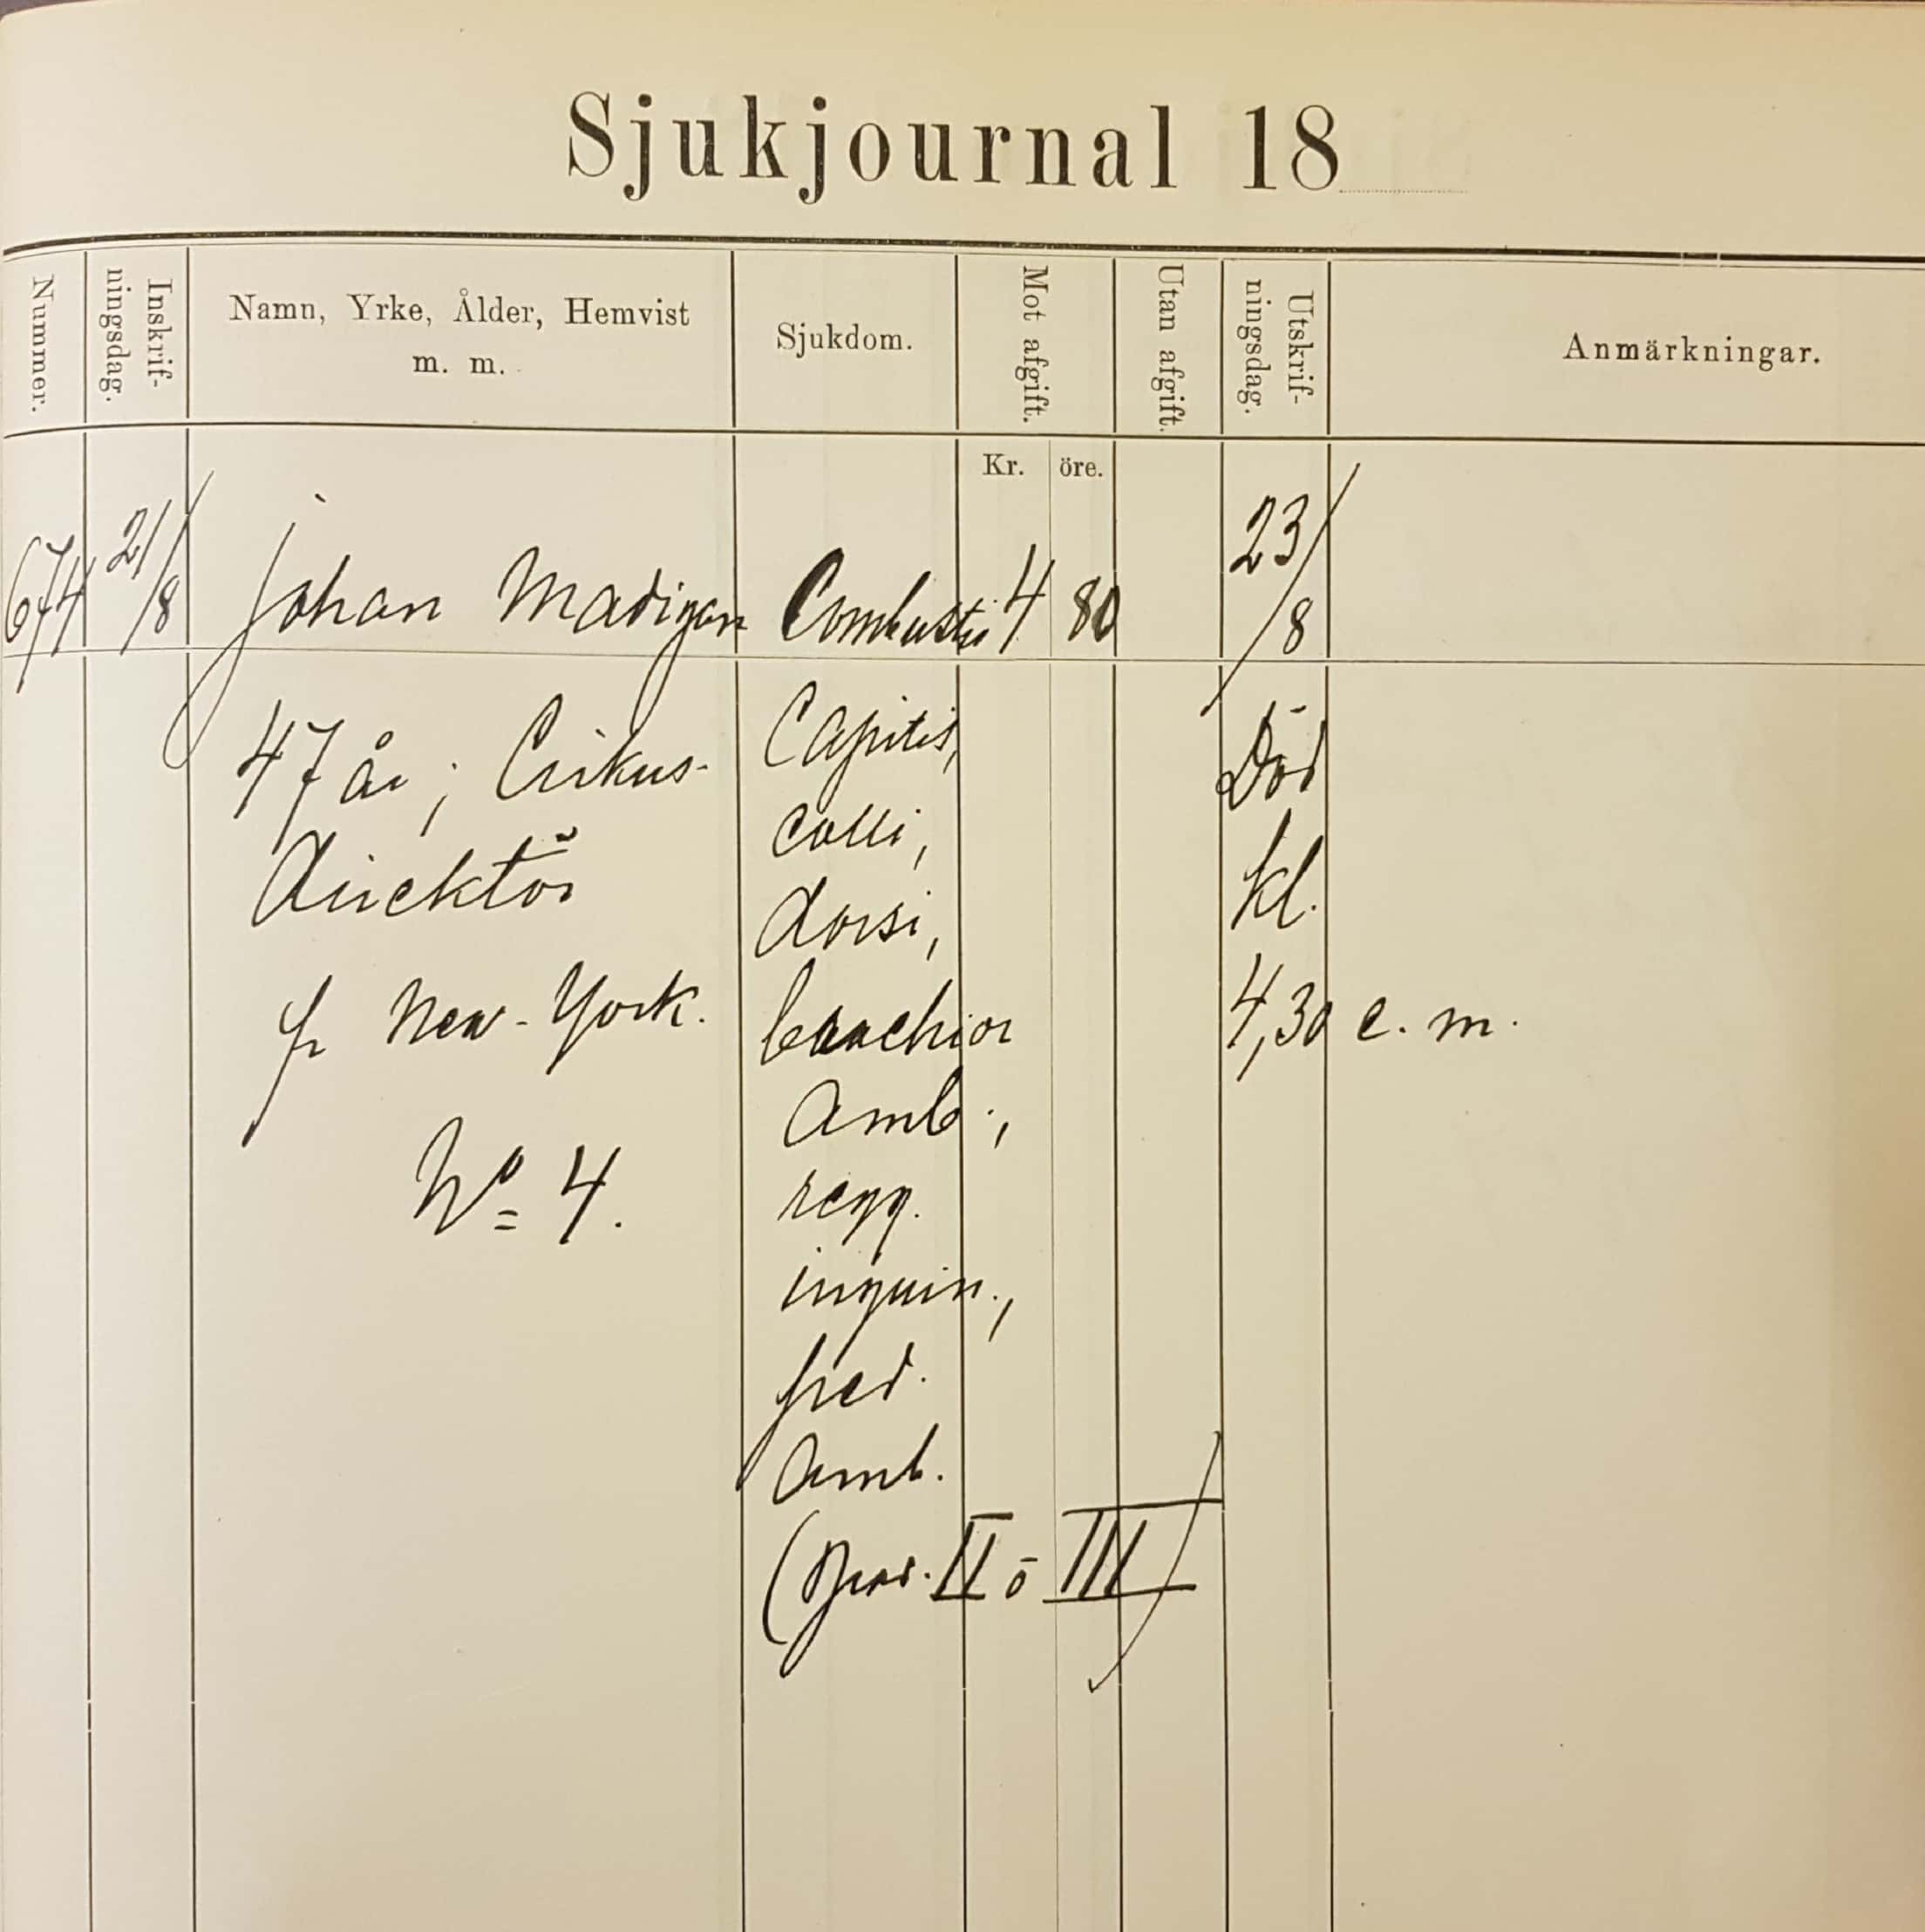 Sjukjournal 18
Nummer.
Inskrif-
ningsdag.
Namn, Yrke, Ålder, Hemvist
m. m.
Sjukdom.
Mot afgift.
Utan afgift.
Utskrif-
ningsdag.
Anmärkningar.
Kr. öre.
674 21/8 Johan Madigan Combustio 4 80 23/8
47 år; Cirkus-
direktör
fr New-York.
No 4.
Capitis,
colli,
dorsi,
brachior
amb.,
regg.
inguin.,
ped.
amb.
(Grad. II o III)
Död
kl.
4,30 e. m.